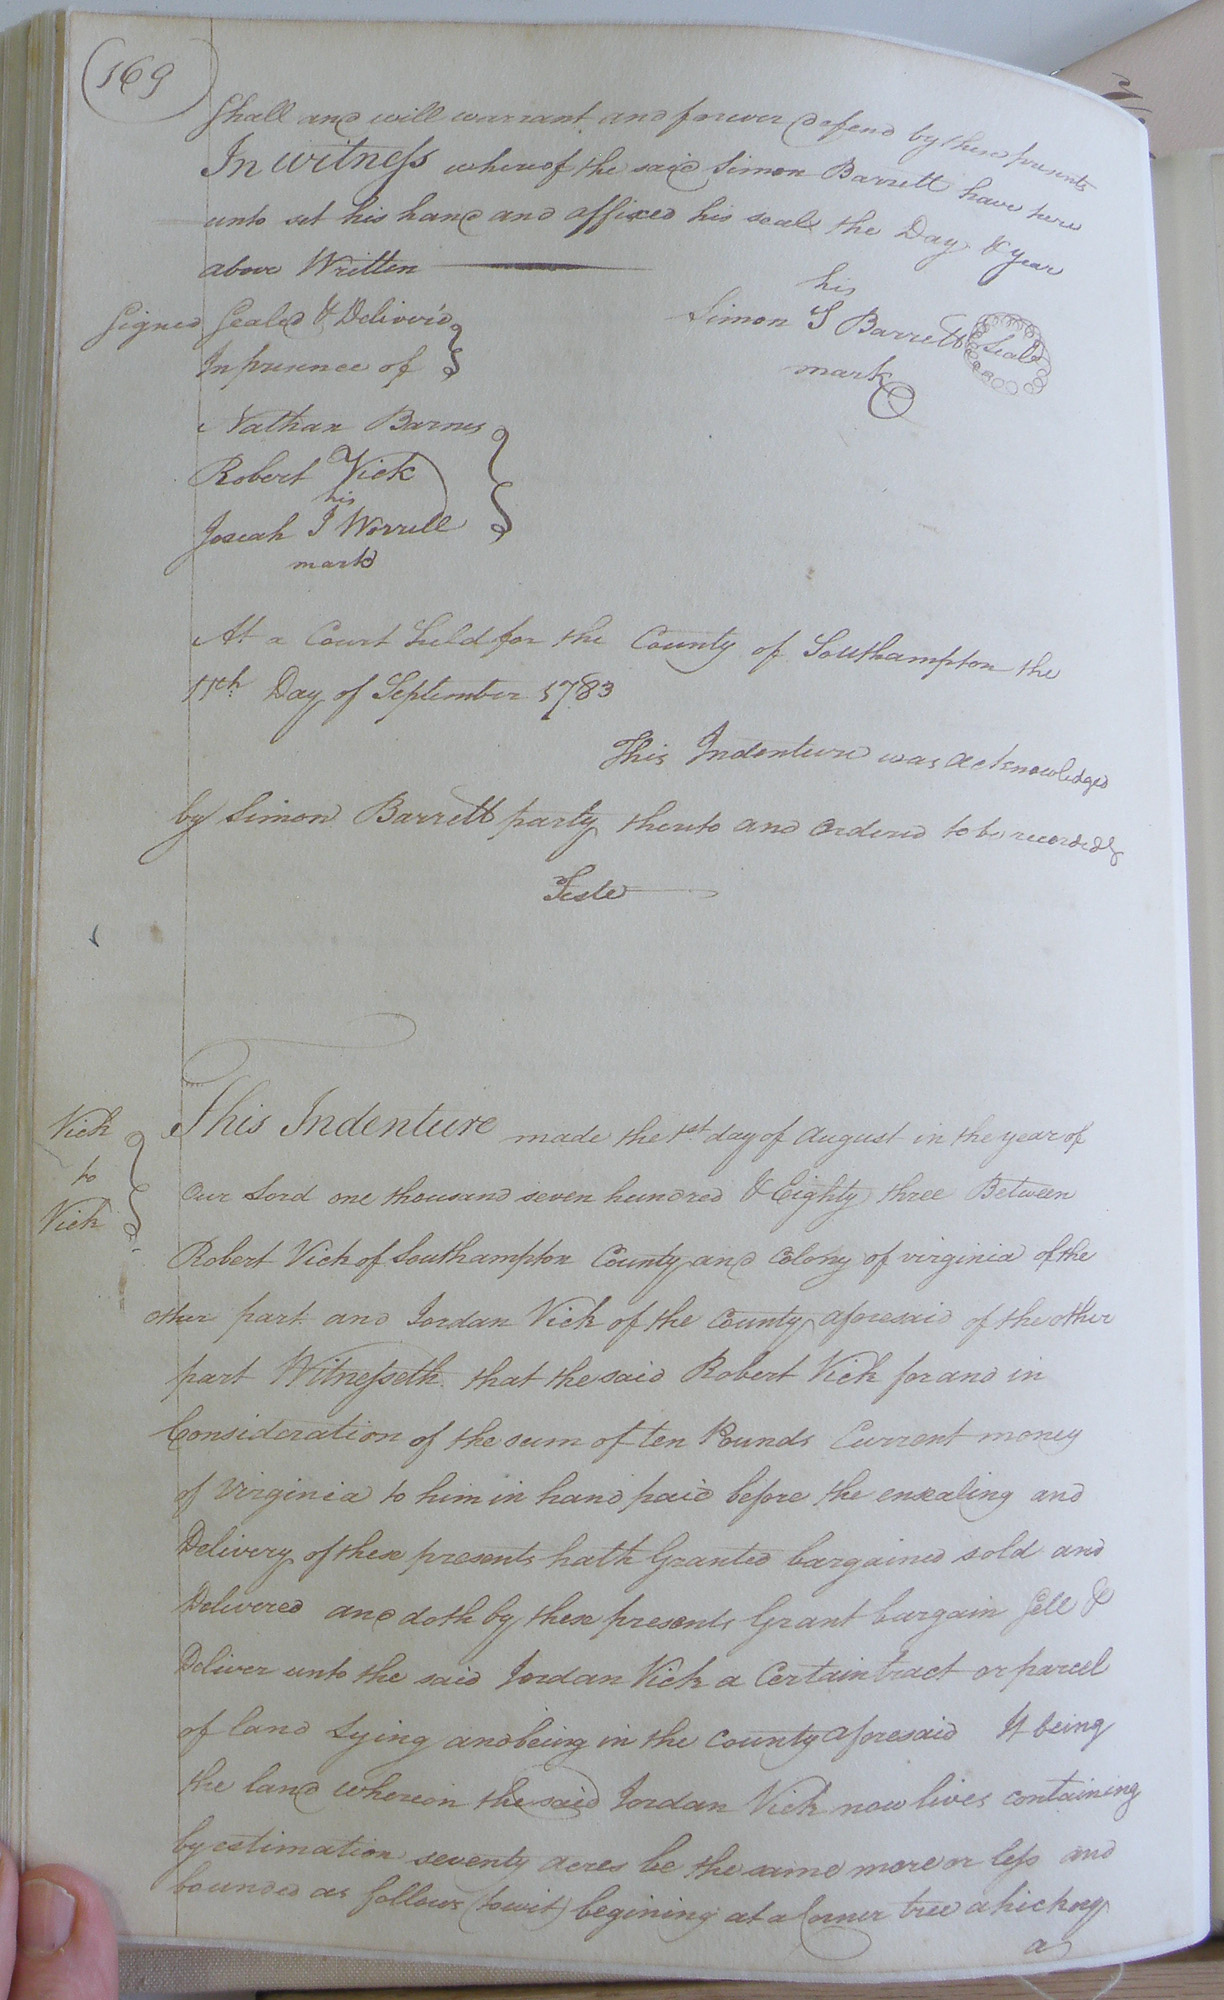 (169)
Shall and will warrant and forever defend by these presents
In witness whereof the said Simon Barrett have here
unto set his hand and affixed his seal the Day & year
above Written
Signed Sealed & Deliver'd
In presence of
his
Simon S Barrett Seal
mark
Nathan Barnes
Robert Vick
his
Josiah I Worrell
mark
At a Court held for the County of Southampton the
11th Day of September 1783
This Indenture was acknowledged
by Simon Barrett party thereto and ordered to be recorded
Teste
Vick
to
Vick
This Indenture made the 1st day of August in the year of
our Lord one thousand seven hundred & Eighty three Between
Robert Vick of Southampton County and Colony of virginia of the
other part and Jordan Vick of the County aforesaid of the other
part Witnesseth that the said Robert Vick for and in
Consideration of the sum of ten Pounds Current money
of Virginia to him in hand paid before the ensealing and
Delivery of these presents hath Granted bargained sold and
Delivered and doth by these presents Grant bargain Sell &
Deliver unto the said Jordan Vick a Certain tract or parcel
of land Lying and being in the County aforesaid It being
the land whereon the said Jordan Vick now lives containing
by estimation seventy acres be the same more or less and
bounded as follows (towit) begining at a Corner tree a hickory
a